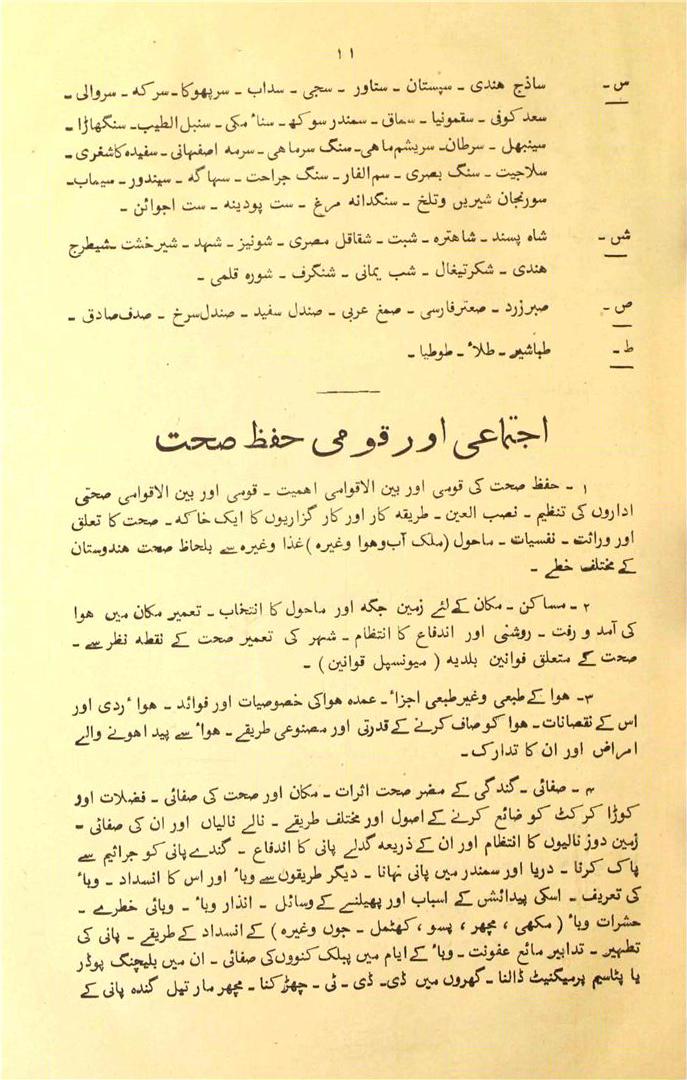 ۱۱
س۔ ساذج ھندی ۔ سپستان ۔ ستاور ۔ سجی ۔ سداب ۔ سرپھوکا ۔ سرکہ ۔ سروالی ۔
سعد کوفی ۔ سقمونیا ۔ سماق ۔ سمندر سوکھ ۔ سناء مکی ۔ سنبل الطیب ۔ سنگھاڑا ۔
سینبھل ۔ سرطان ۔ سریشم ماھی ۔ سنگ سرماھی ۔ سرمہ اصفھانی ۔ سفیدہ کاشغری ۔
سلاجیت ۔ سنگ بصری ۔ سم الفار ۔ سنگ جراحت ۔ سہاگہ ۔ سیندور ۔ سیماب ۔
سورنجان شیریں وتلخ ۔ سنگدانہ مرغ ۔ ست پودینہ ۔ ست اجوائن ۔
ش۔ شاہ پسند ۔ شاھترہ ۔ شبت ۔ شقاقل مصری ۔ شونیز ۔ شہد ۔ شیرخشت ۔ شیطرج
ھندی ۔ شکرتیغال ۔ شب یمانی ۔ شنگرف ۔ شورہ قلمی ۔
ص۔ صبرزرد ۔ صعترفارسی ۔ صمغ عربی ۔ صندل سفید ۔ صندل سرخ ۔ صدف صادق ۔
ط۔ طباشیر ۔ طلاء ۔ طوطیا ۔
اجتماعی اور قومی حفظ صحت
۱ ۔ حفظ صحت کی قومی اور بین الاقوامی اھمیت ۔ قومی اور بین الاقوامی صحتی
اداروں کی تنظیم ۔ نصب العین ۔ طریقہ کار اور کار گزاریوں کا ایک خاکہ ۔ صحت کا تعلق
اور وراثت ۔ نفسیات ۔ ماحول (ملک آب وھوا وغیرہ) غذا وغیرہ سے بلحاظ صحت ھندوستان
کے مختلف خطے ۔
۲ ۔ مساکن ۔ مکان کے لئے زمین جگہ اور ماحول کا انتخاب ۔ تعمیر مکان میں ھوا
کی آمد و رفت ۔ روشنی اور اندفاع کا انتظام ۔ شہر کی تعمیر صحت کے نقطہ نظر سے ۔
صحت کے متعلق قوانین بلدیہ (میونسپل قوانین) ۔
۳۔ ھوا کے طبعی وغیر طبعی اجزاء ۔ عمدہ ھوا کی خصوصیات اور فوائد ۔ ھواء ردی اور
اس کے نقصانات ۔ ھوا کو صاف کرنے کے قدرتی اور مصنوعی طریقے ۔ ھواء سے پیدا ھونے والے
امراض اور ان کا تدارک ۔
۴ ۔ صفائی ۔ گندگی کے مضر صحت اثرات ۔ مکان اور صحت کی صفائی ۔ فضلات اور
کوڑا کرکٹ کو ضائع کرنے کے اصول اور مختلف طریقے ۔ نالے نالیاں اور ان کی صفائی ۔
زمین دوز نالیوں کا انتظام اور ان کے ذریعہ گدلے پانی کا اندفاع ۔ گندے پانی کو جراثیم سے
پاک کرنا ۔ دریا اور سمندر میں پانی نہانا ۔ دیگر طریقوں سے وباء اور اس کا انسداد ۔ وباء
کی تعریف ۔ اسکی پیدائش کے اسباب اور پھیلنے کے وسائل ۔ انذار وباء ۔ وبائی خطرے ۔
حشرات وباء (مکھی ، مچھر ، پسو ، کھٹمل ۔ جوں وغیرہ) کے انسداد کے طریقے ۔ پانی کی
تطہیر ۔ تدابیر مانع عفونت ۔ وباء کے ایام میں پبلک کنووں کی صفائی ۔ ان میں بلیچنگ پوڈر
یا پٹاسیم پرمیگنیٹ ڈالنا ۔ گھروں میں ڈی۔ ڈی ۔ ٹی ۔ چھڑکنا ۔ مچھر مار تیل گندہ پانی کے